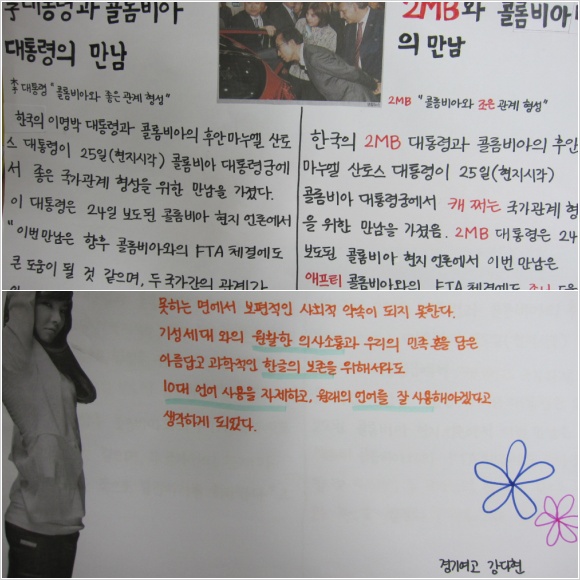 李대통령과 콜롬비아
대통령의 만남
李 대통령 "콜롬비아와 좋은 관계 형성"
한국의 이명박 대통령과 콜롬비아의 후안마누엘 산토
스 대통령이 25일(현지시각) 콜롬비아 대통령궁에
서 좋은 국가관계 형성을 위한 만남을 가졌다.
이 대통령은 24일 보도된 콜롬비아 현지 언론에서
"이번 만남은 향후 콜롬비아와의 FTA 체결에도
큰 도움이 될 것 같으며, 두 국가간의 관계가
2MB와 콜롬비아
의 만남
2MB "콜롬비아와 조은 관계 형성"
한국의 2MB 대통령과 콜롬비아의 후안
마누엘 산토스 대통령이 25일(현지시각)
콜롬비아 대통령궁에서 캐 쩌는 국가관계 형
을 위한 만남을 가졌음. 2MB 대통령은 24
보도된 콜롬비아 현지 언론에서 이번 만남은
애프티 콜롬비아와의 FTA 체결에도
못하는 면에서 보편적인 사회적 약속이 되지 못한다.
기성세대 와의 원활한 의사소통과 우리의 민족 혼을 담은
아름답고 과학적인 한글의 보존을 위해서라도
10대 언어 사용을 자제하고, 원래의 언어를 잘 사용해야겠다고
생각하게 되었다.
경기여고 강다현